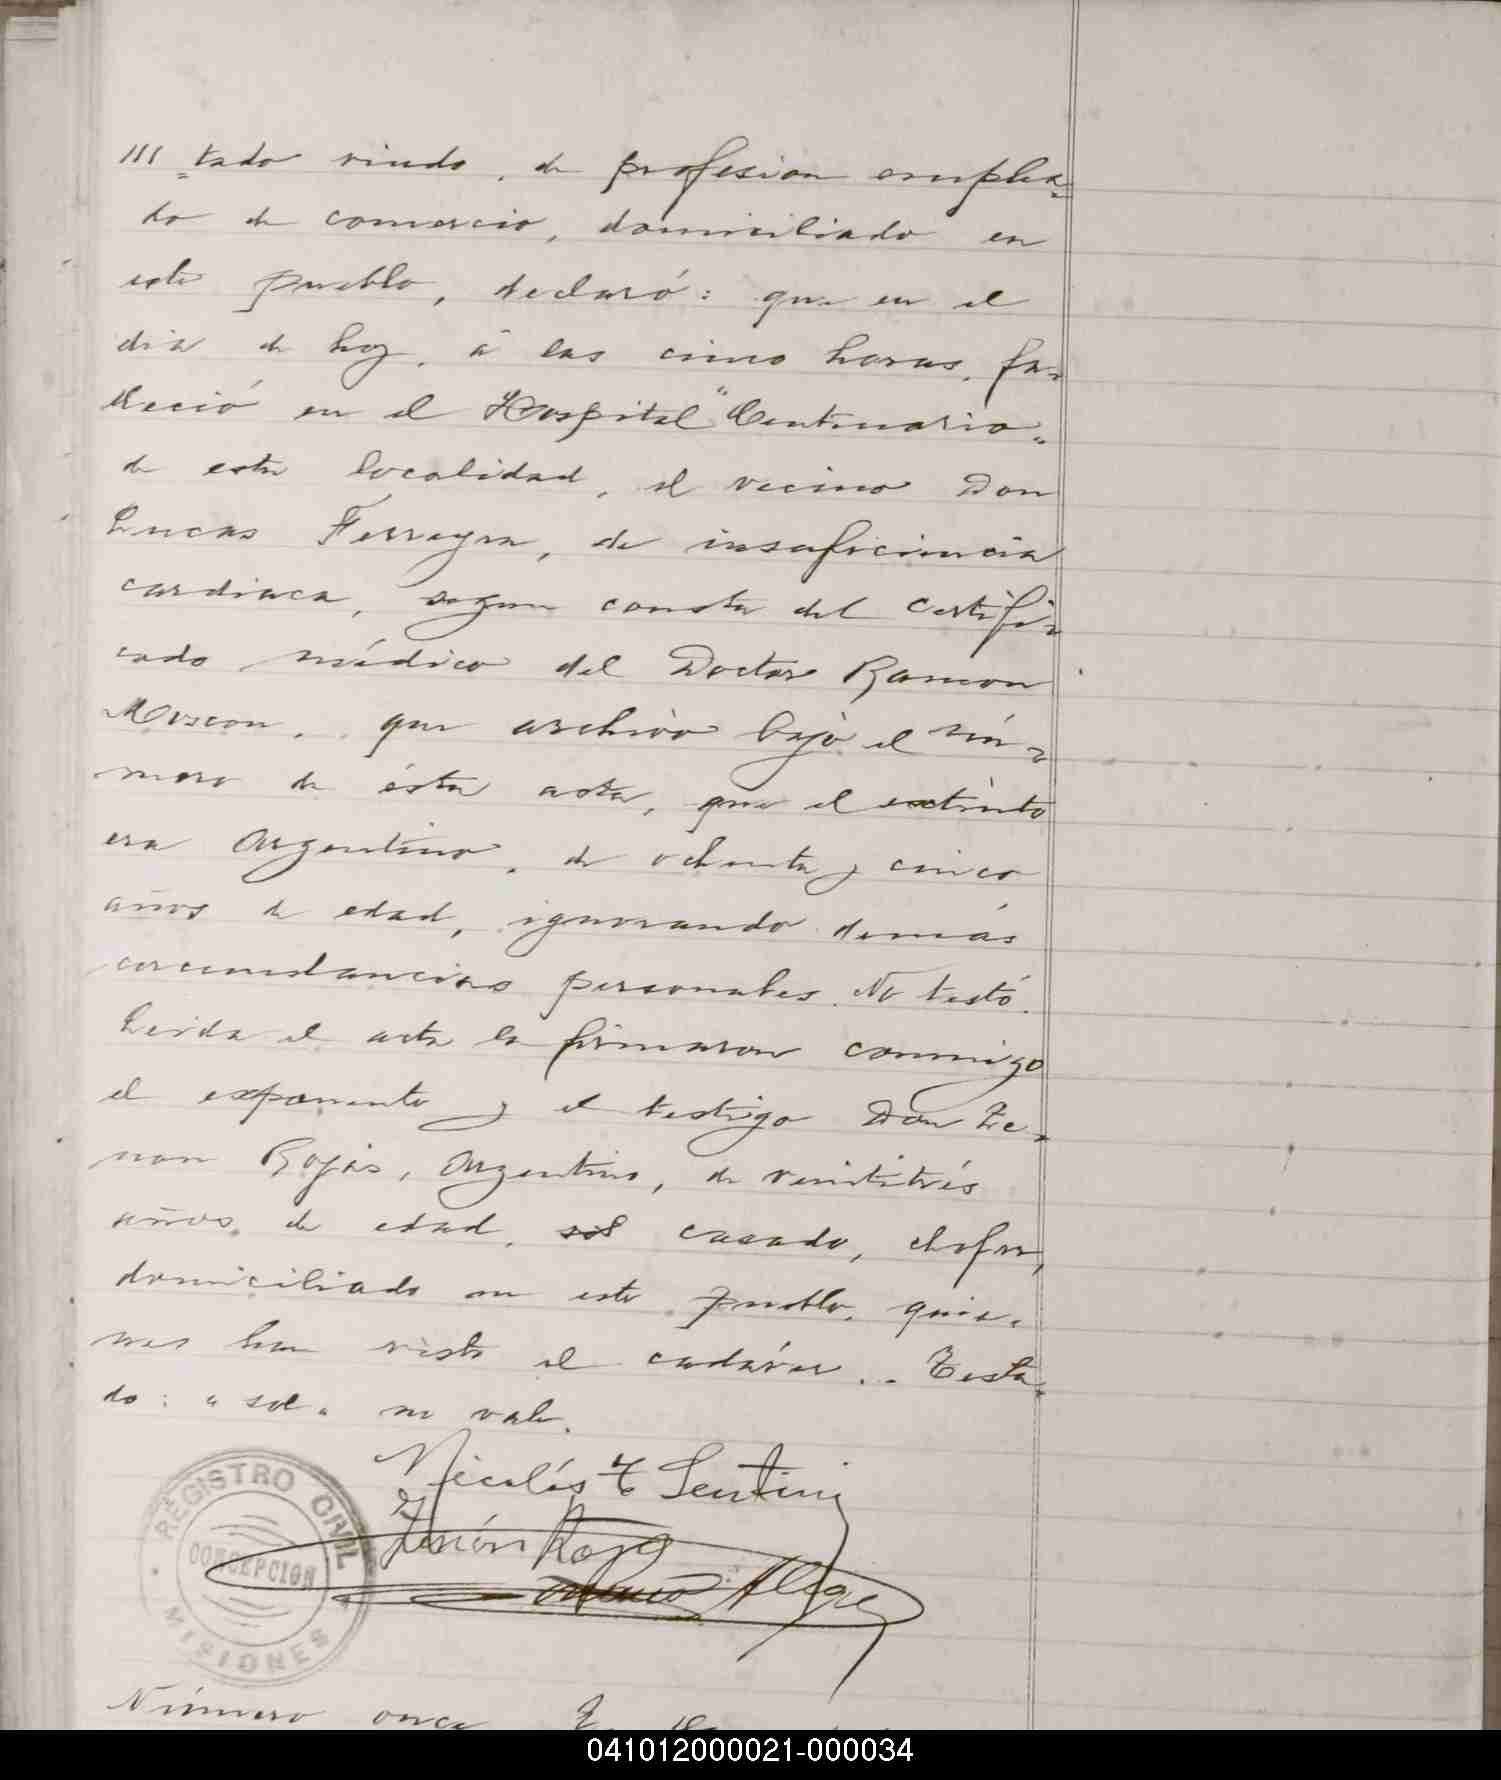 /// tado viudo, de profesion emplea-
do de comercio, domiciliado en
este pueblo, declaró: que en el
dia de hoy, á las cinco horas, fa-
lleció en el Hospital "Centenario"
de esta localidad, el vecino Don
Lucas Ferreyra, de insuficiencia
cardiaca, segun consta del certifi-
cado médico del Doctor Ramon
Moscon, que archivo bajo el nú-
mero de ésta acta, que el extinto
era Argentino, de ochenta y cinco
años de edad, ignorando demás
circunstancias personales. No testó.
Leida el acta la firmaron conmigo
el exponente y el testigo Don Ze-
non Rojas, Argentino, de veintitrés
años de edad, sol casado, chofer,
domiciliado en este pueblo, quie-
nes han visto el cadáver.. Testa-
do: "sol" no vale.
Nicolás
Zenón Rojas
Alegre
REGISTRO CIVIL
CONCEPCION
MISIONES
Número once
041012000021-000034